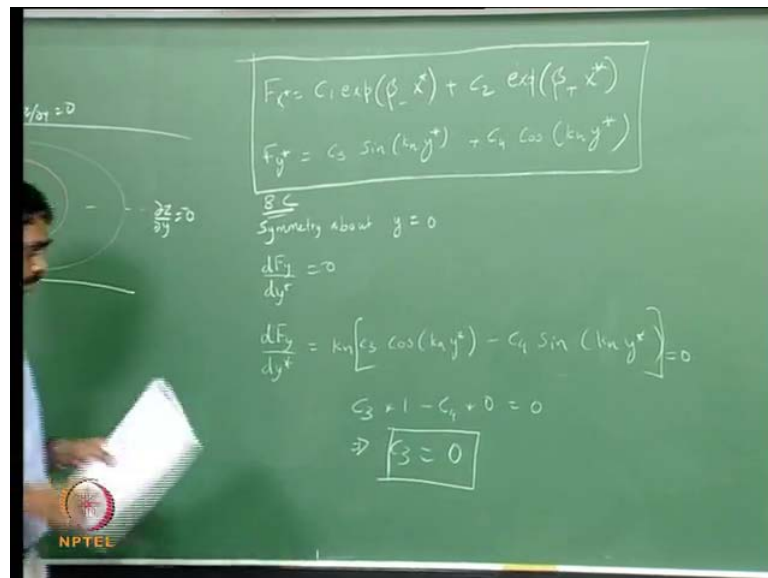 ∂Z/∂y = 0
F_x* = C₁ exp(β₋ x*) + C₂ exp(β₊ x*)
F_y* = C₃ sin(kn y*) + C₄ cos(kn y*)
∂Z/∂y = 0
BC
Symmetry about y = 0
dFy/dy* = 0
dFy/dy* = kn[C₃ cos(kn y*) - C₄ sin(kn y*)] = 0
C₃ * 1 - C₄ * 0 = 0
⇒ C₃ = 0
NPTEL